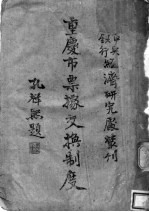 中央
銀行經濟研究處叢刊
重慶市票據交換制度
孔祥熙題